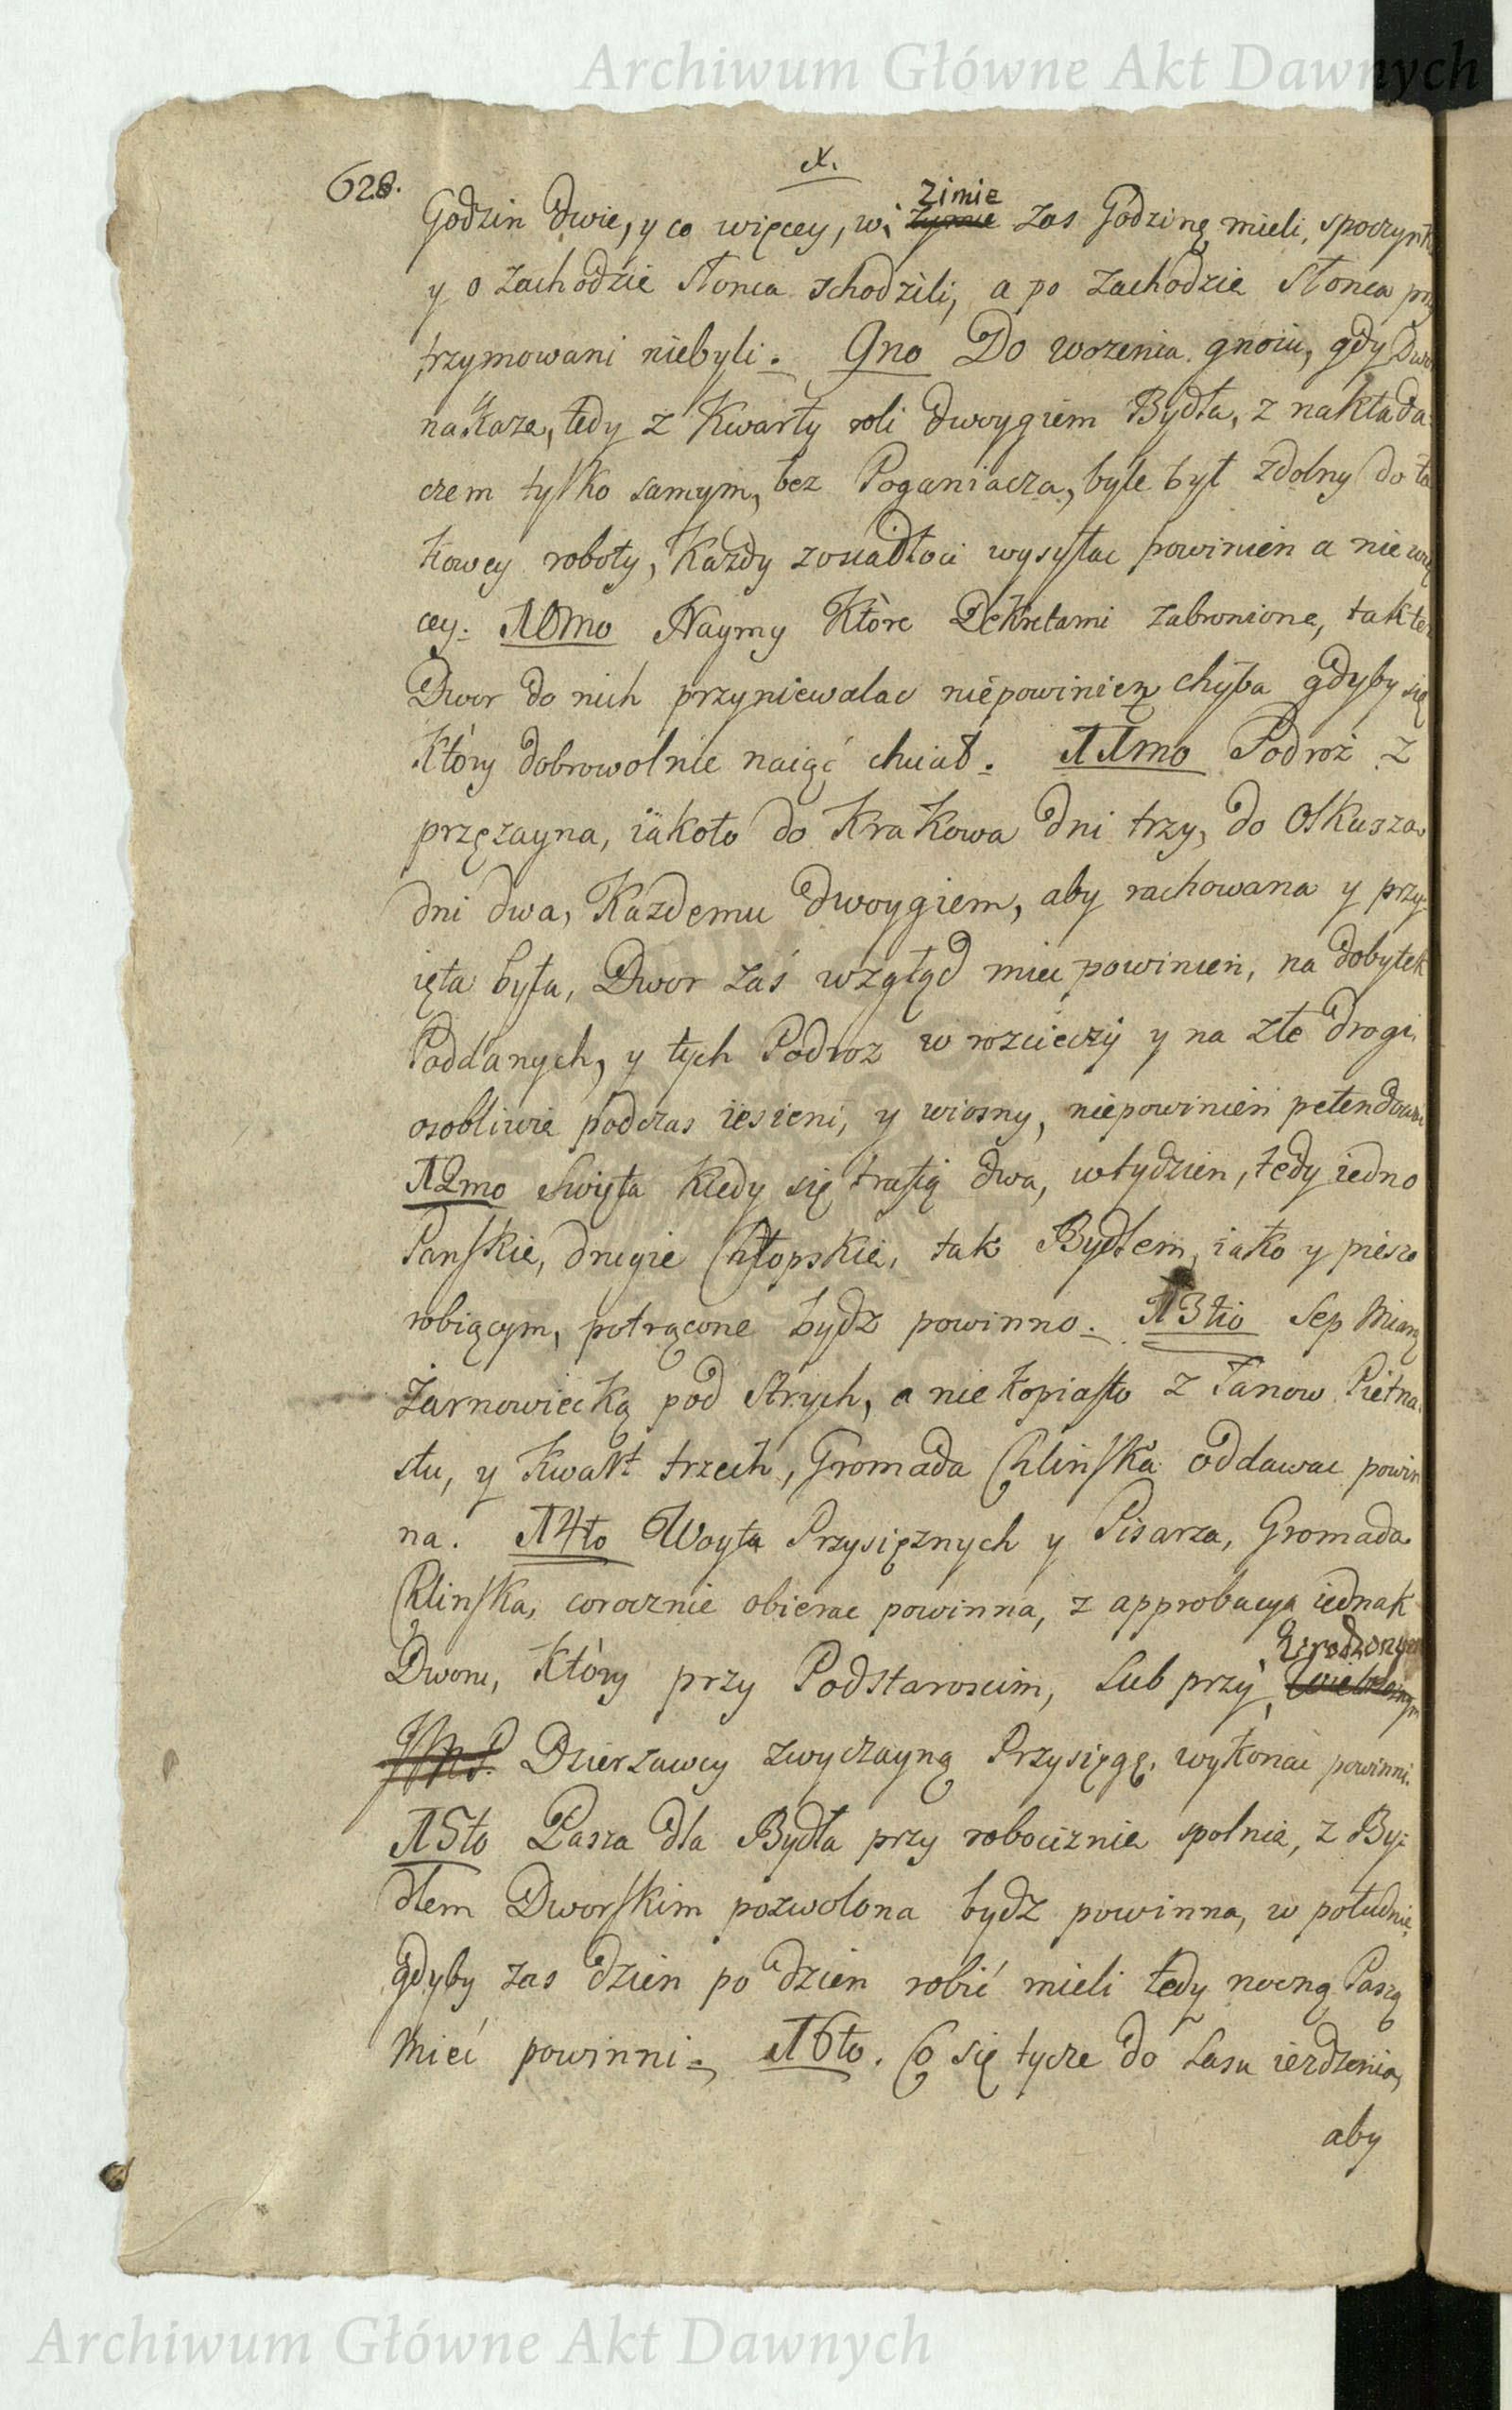 Archiwum Główne Akt Dawnych
x.
628.
Godzin dwie, y co więcey, w, zymie zimie zas Godzinę mieli, spoczynk
y o Zachodzie słonca schodzili, a po Zachodzie Słonca prz
trzymowani niebyli. 9no Do wozenia gnoiu, gdy Dwor
nakaze, tedy z Kwarty roli dwoygiem Bydła, z nakłada
czem tylko samym, bez Poganiacza, byle był zdolny do ta
kowey roboty, Każdy zosiadłości wysyłac powinien a nie wię
cey. 10mo Naymy Które Dekretami zabronione, tak też
Dwor do nich przyniewalac niepowinien chyba gdyby się
Który dobrowolnie naiąć chciał. 11mo Podroż z
przęzayna, iäkoto do Krakowa dni trzy, do Olkusza
dni dwa, Kazdemu dwoygiem, aby rachowana y przy-
ięta była, Dwor zaś wzgląd miec powinien, na dobytek
Poddanych, y tych Podroz w rozcieczy y na złe drogi
osobliwie podczas iesieni, y wiosny, niepowinien petendowac
12mo Swięta Kiedy się trafią dwa, wtydzien, tedy iedno
Panskie, drugie Chłopskie, tak Bydłem, iako y pieszo
robiącym, potrącone bydz powinno. 13tio Sep Miarą
Żarnowiecką pod Strych, a nie kopiasto z Łanow Piętna
stu, y Kwart trzech, Gromada Chlinska oddawac powin
na. 14to Woyta Przysięznych y Pisarza, Gromada
Chlinska, corocznie obierac powinna, z approbacyą iednak
Dworu, Który przy Podstaroscim, Lub przy Wielmoznym Urodzonym
JMP. Dzierzawcy zwyczayną Przysięgę, wykonac powinni.
15to Pasza dla Bydła przy robociznie spolnie, z By-
dłem Dworskim pozwolona bydz powinna, w południe
gdyby zas dzien po dzien robić mieli tedy nocną Paszą
Mieć powinni. 16to. Co się tycze do Lasu iezdzenia,
aby
Archiwum Główne Akt Dawnych